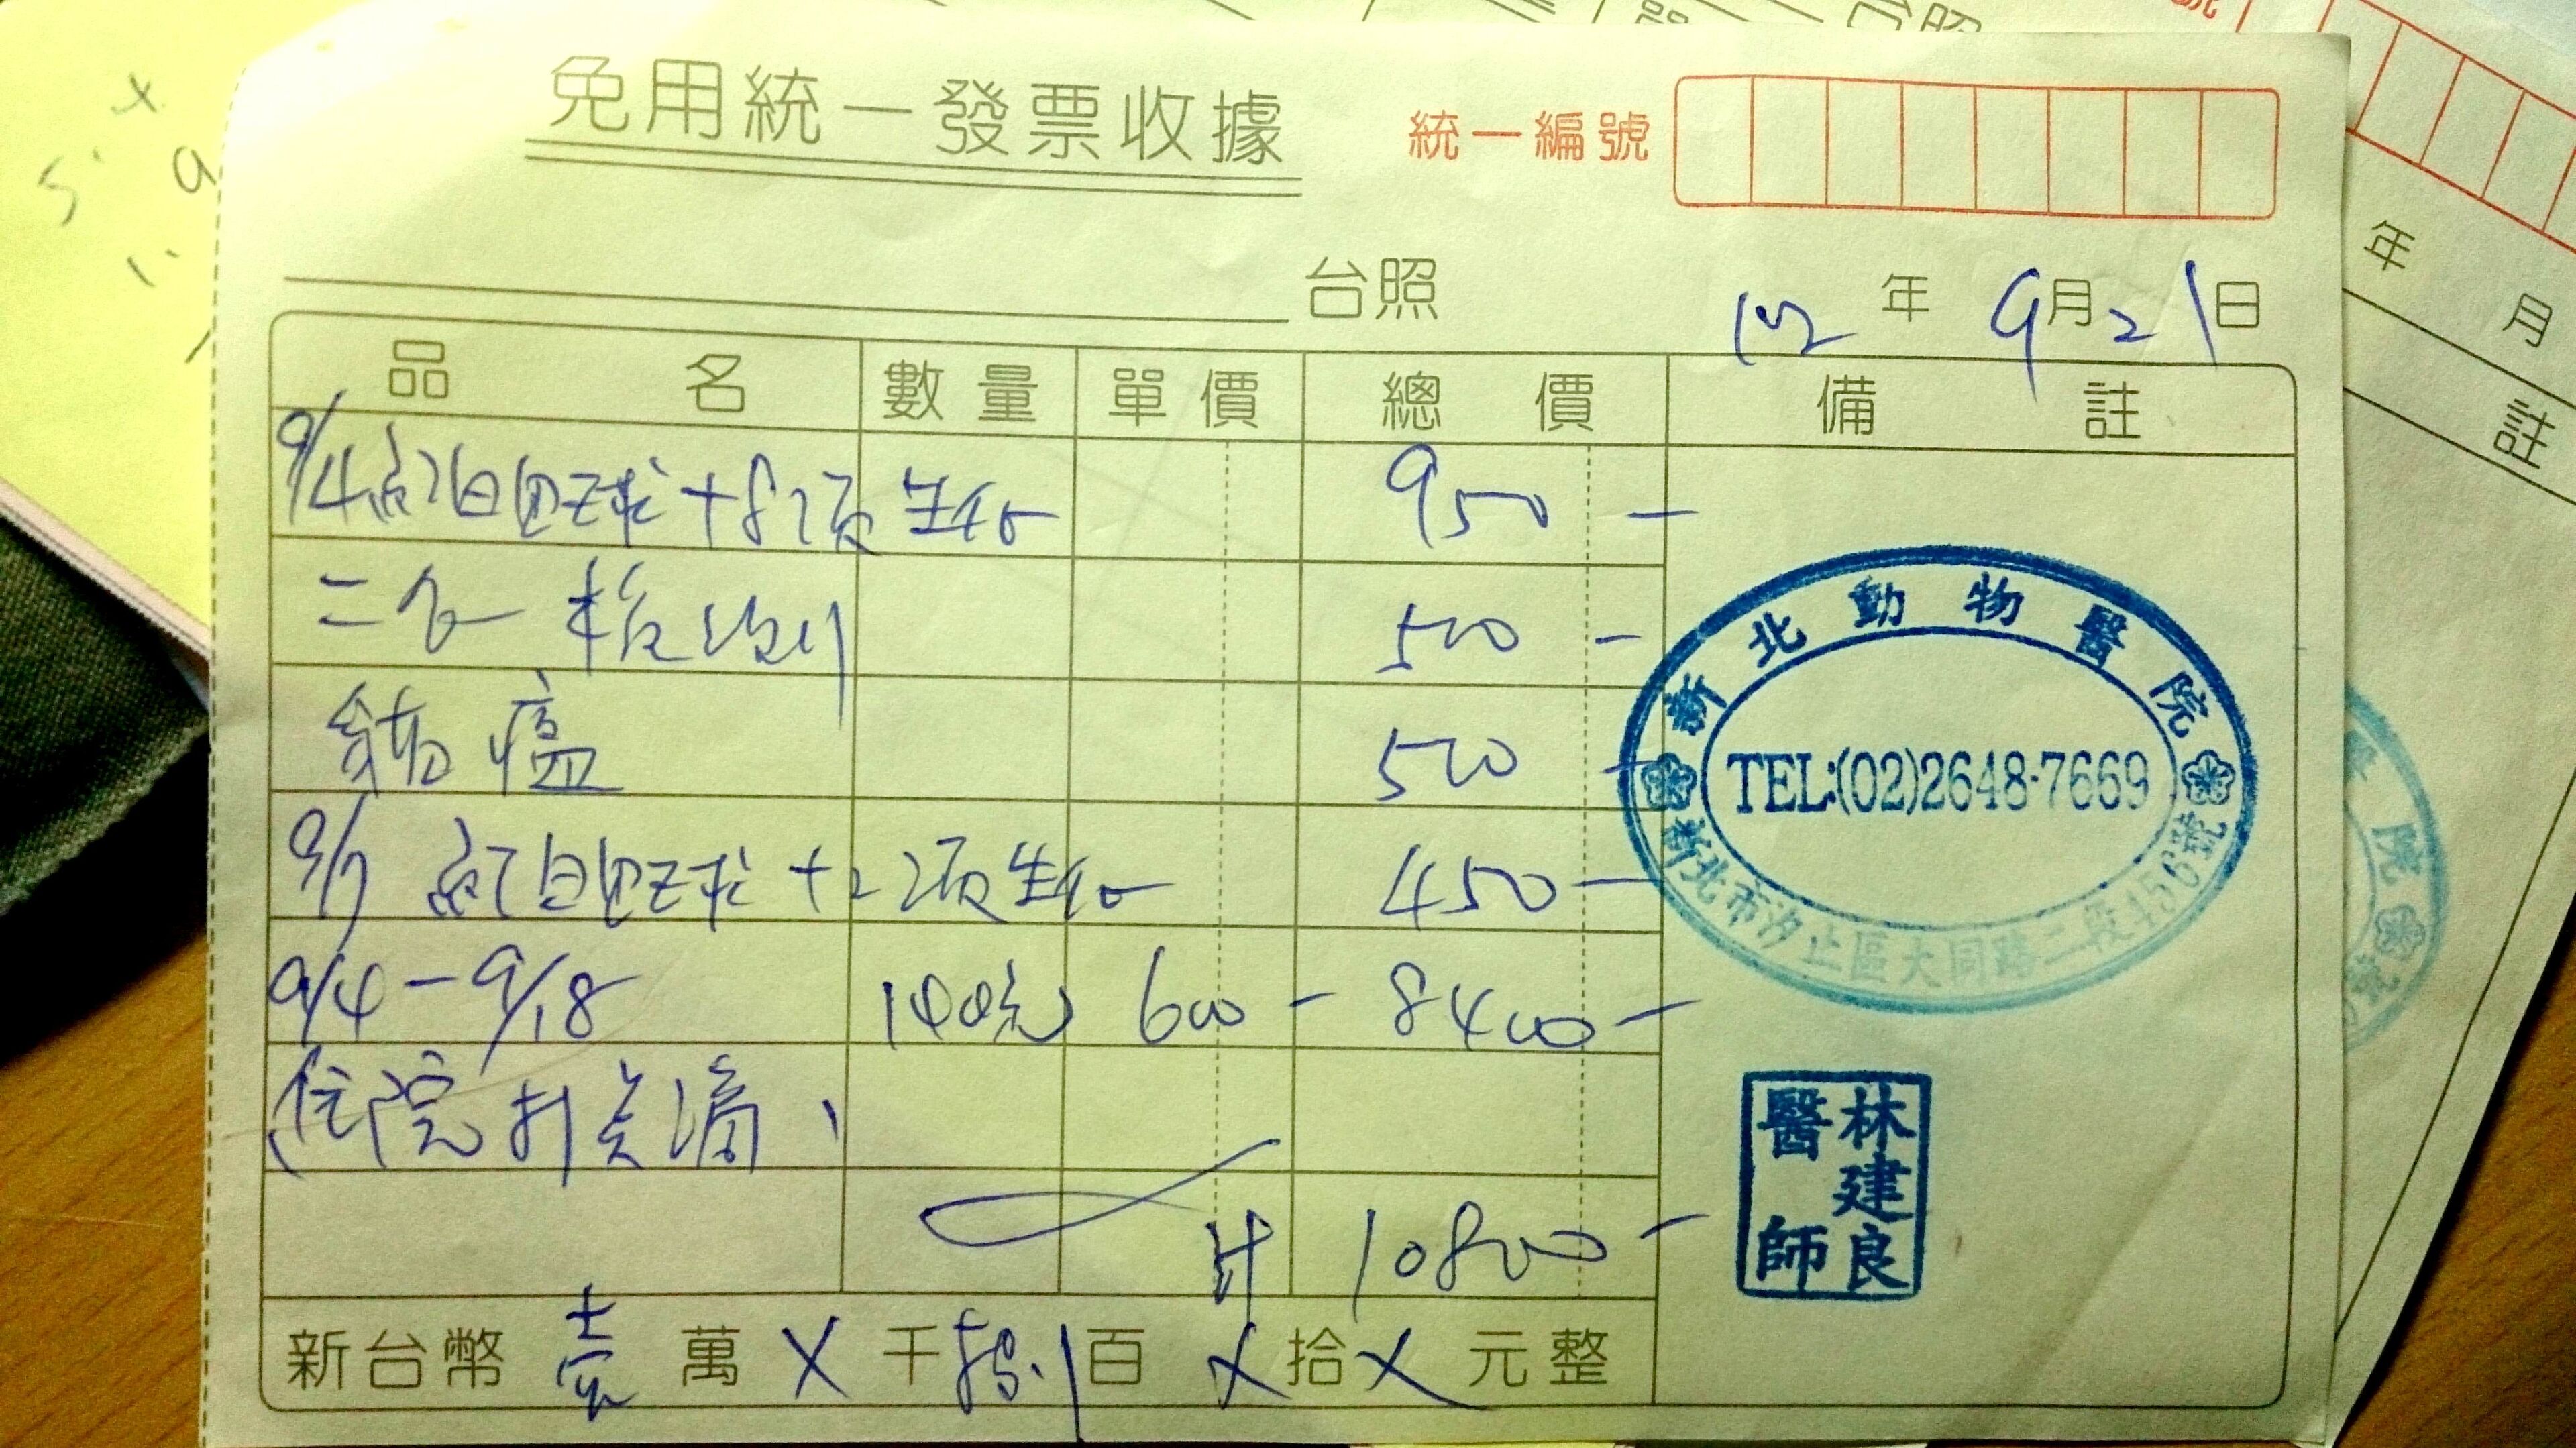 免用統一發票收據
統一編號
台照
年 9月21日
品名 數量 單價 總價 備註
9/4 紅白血球+8項生化 950-
二合一檢測 500-
貓瘟 500-
9/7 紅白血球+2項生化 450-
9/4-9/18 14 600- 8400-
住院打点滴、
計 10800-
新台幣 壹 萬 X 千 捌 百 X 拾 X 元整
新北動物醫院
TEL:(02)2648-7669
新北市汐止區大同路二段456號
林建良
醫師
年 月
註
院
號